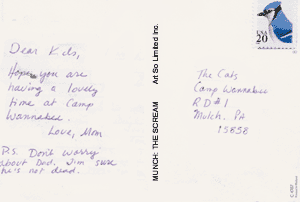 Dear Kids,
Hope you are
having a lovely
time at Camp
Wannabee.
Love, Mom
P.S. Don't worry
about Dad. I'm sure
he's not dead.
MUNCH: THE SCREAM
Art So Limited Inc.
USA
20
The Cats
Camp Wannabee
RD#1
Mulch, PA
15858